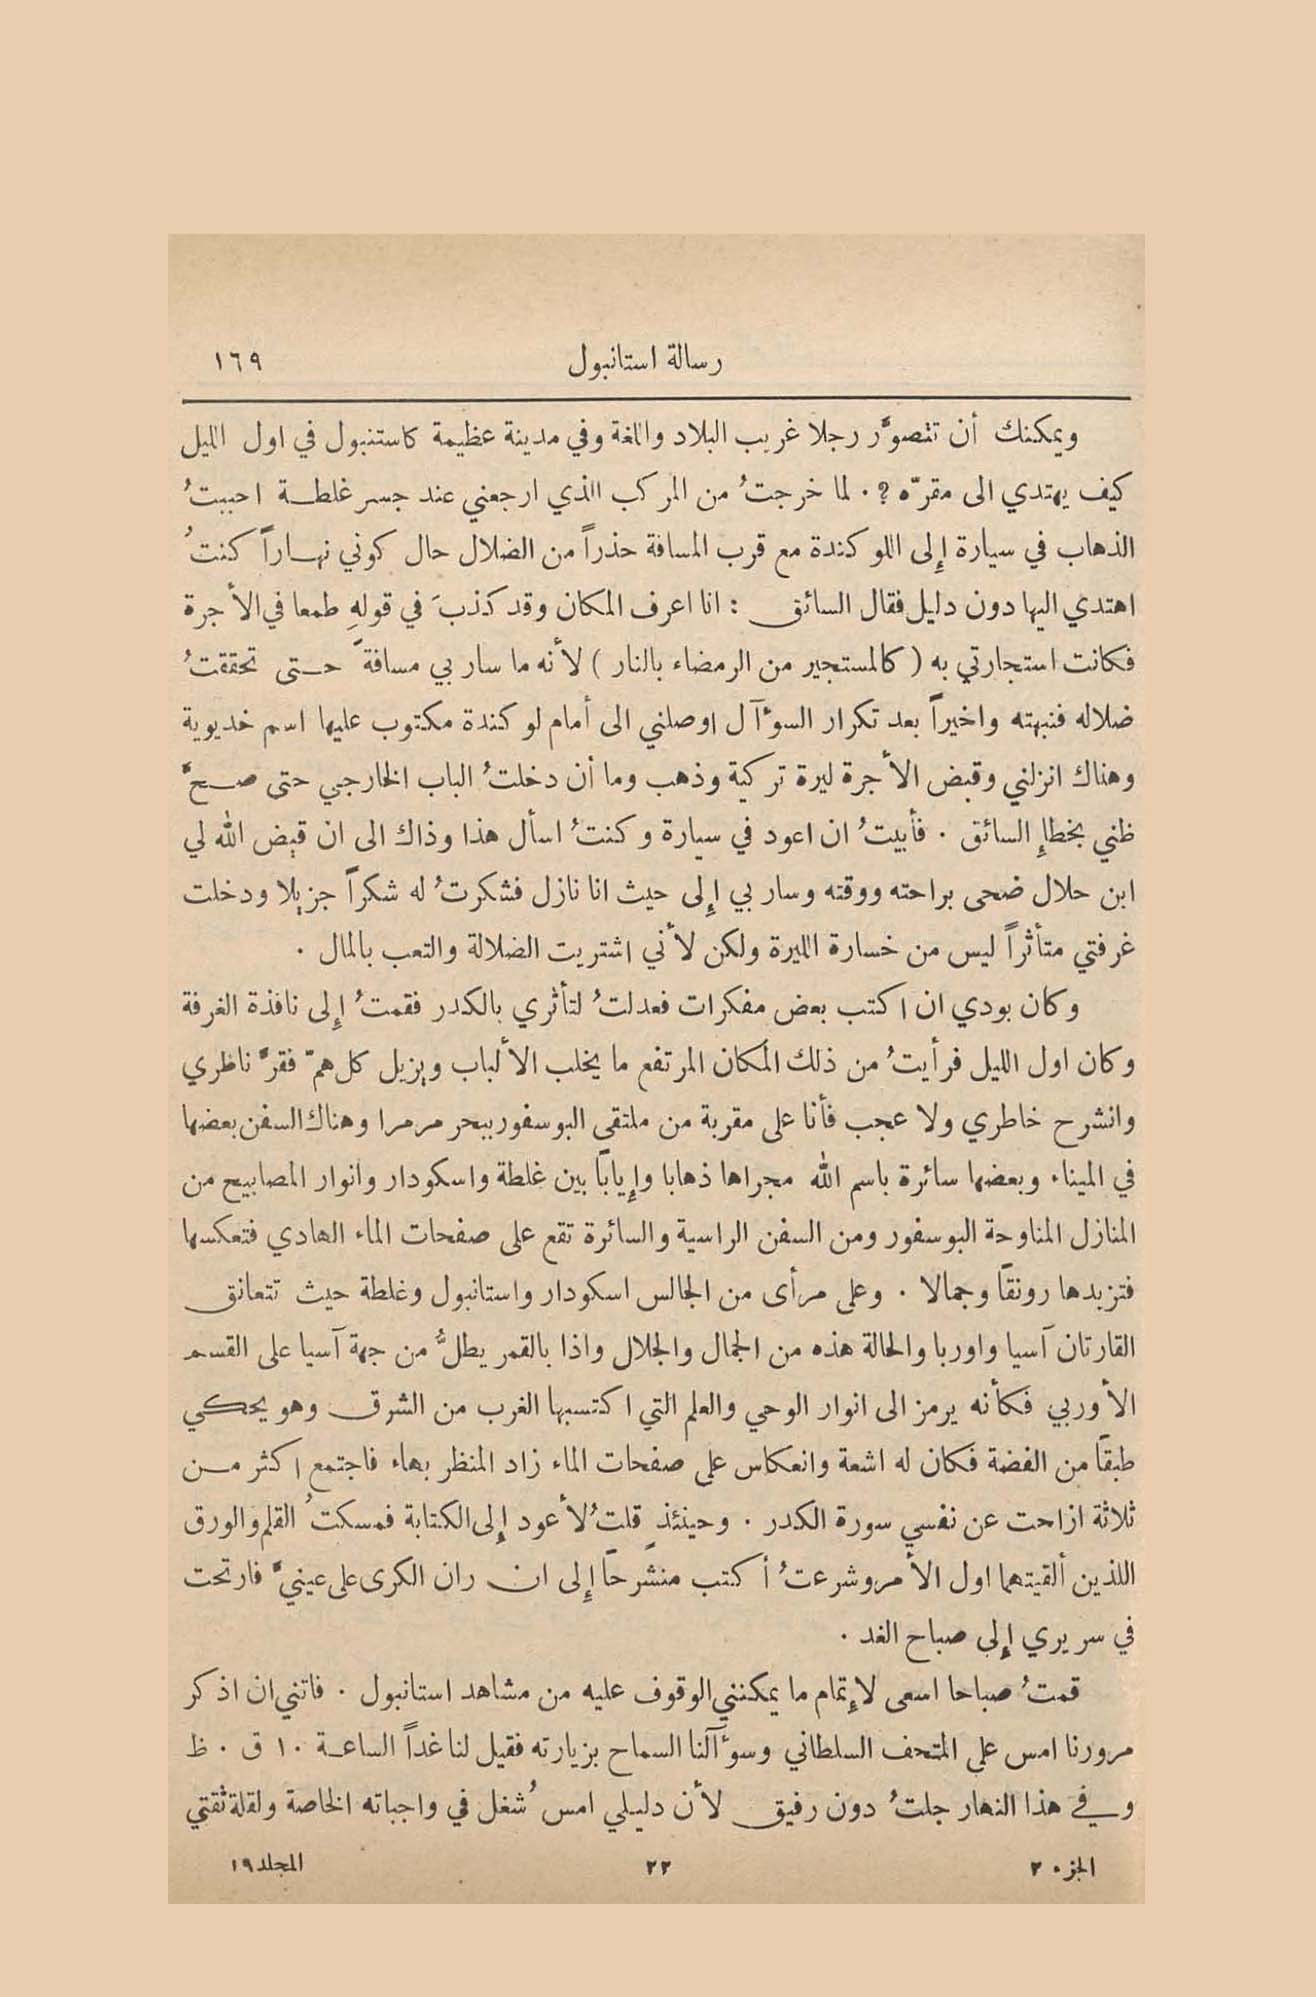 رسالة استانبول ١٦٩
ويمكنك أن تتصوَّر رجلا غريب البلاد واللغة وفي مدينة عظيمة كاستنبول في اول الليل
كيف يهتدي الى مقرّه ؟ . لما خرجتُ من المركب الذي ارجعني عند جسر غلطة احببتُ
الذهاب في سيارة إلى اللوكندة مع قرب المسافة حذراً من الضلال حال كوني نهاراً كنتُ
اهتدي اليها دون دليل فقال السائق : انا اعرف المكان وقد كذبَ في قولهِ طمعا في الأجرة
فكانت استجارتي به ( كالمستجير من الرمضاء بالنار ) لأنه ما سار بي مسافةً حتى تحققتُ
ضلاله فنبهته واخيراً بعد تكرار السؤآل اوصلني الى أمام لوكندة مكتوب عليها اسم خديوية
وهناك انزلني وقبض الأجرة ليرة تركية وذهب وما أن دخلتُ الباب الخارجي حتى صحَّ
ظني بخطإِ السائق . فأبيتُ ان اعود في سيارة وكنتُ اسأل هذا وذاك الى ان قيض الله لي
ابن حلال ضحى براحته ووقته وسار بي إِلى حيث انا نازل فشكرتُ له شكراً جزيلا ودخلت
غرفتي متأثراً ليس من خسارة الليرة ولكن لأني اشتريت الضلالة والتعب بالمال .
وكان بودي ان اكتب بعض مفكرات فعدلتُ لتأثري بالكدر فقمتُ إِلى نافذة الغرفة
وكان اول الليل فرأيتُ من ذلك المكان المرتفع ما يخلب الألباب ويزيل كل همّ فقرَّ ناظري
وانشرح خاطري ولا عجب فأنا على مقربة من ملتقى البوسفور ببحر مرمرا وهناك السفن بعضها
في الميناء وبعضها سائرة باسم الله مجراها ذهابا وإِيابًا بين غلطة واسكودار وانوار المصابيح من
المنازل المناوحة البوسفور ومن السفن الراسية والسائرة تقع على صفحات الماء الهادي فتعكسها
فتزيدها رونقًا وجمالا . وعلى مرأى من الجالس اسكودار واستانبول وغلطة حيث تتعانق
القارتان آسيا واوربا والحالة هذه من الجمال والجلال واذا بالقمر يطلُّ من جهة آسيا على القسم
الأوربي فكأنه يرمز الى انوار الوحي والعلم التي اكتسبها الغرب من الشرق وهو يحكي
طبقًا من الفضة فكان له اشعة وانعكاس على صفحات الماء زاد المنظر بهاء فاجتمع اكثر من
ثلاثة ازاحت عن نفسي سورة الكدر . وحينئذٍ قلتُ لأعود إِلى الكتابة فمسكتُ القلم والورق
اللذين ألقيتهما اول الأمر وشرعتُ أكتب منشرحًا إِلى ان ران الكرى على عينيَّ فارتحت
في سريري إِلى صباح الغد .
قمتُ صباحا اسعى لإِتمام ما يمكنني الوقوف عليه من مشاهد استانبول . فاتني ان اذكر
مرورنا امس على المتحف السلطاني وسؤآلنا السماح بزيارته فقيل لنا غداً الساعة ١٠ ق . ظ
وفي هذا النهار جلتُ دون رفيق لأن دليلي امس شُغل في واجباته الخاصة ولقلة ثقتي
الجزء ٣ ٢٢ المجلد ١٩